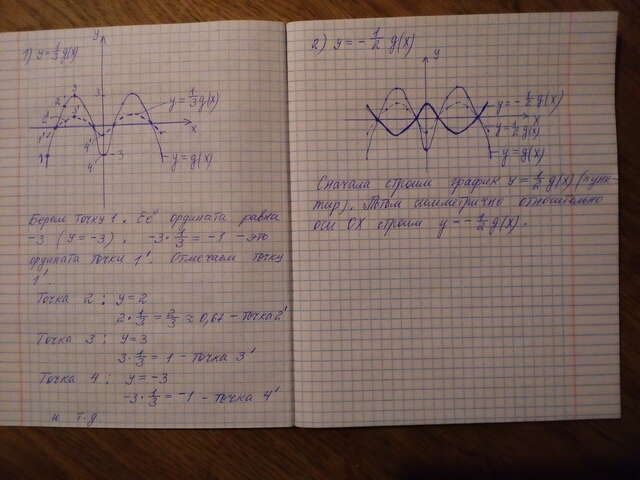 1) y = 1/3 g(x)
y
3
2
3
2'
3'
1'
4'
4
-3
1
x
y = 1/3 g(x)
y = g(x)
Берем точку 1. Её ордината равна
-3 (y = -3). -3 · 1/3 = -1 - это
ордината точки 1'. Отмечаем точку
1'.
Точка 2: y = 2
2 · 1/3 = 2/3 ≈ 0,67 - точка 2'
Точка 3: y = 3
3 · 1/3 = 1 - точка 3'
Точка 4: y = -3
-3 · 1/3 = -1 - точка 4'
и т.д.
2) y = - 1/2 g(x)
y
x
y = - 1/2 g(x)
y = 1/2 g(x)
y = g(x)
Сначала строим график y = 1/2 g(x) (пунк-
тир). Потом симметрично относительно
оси OX строим y = - 1/2 g(x).